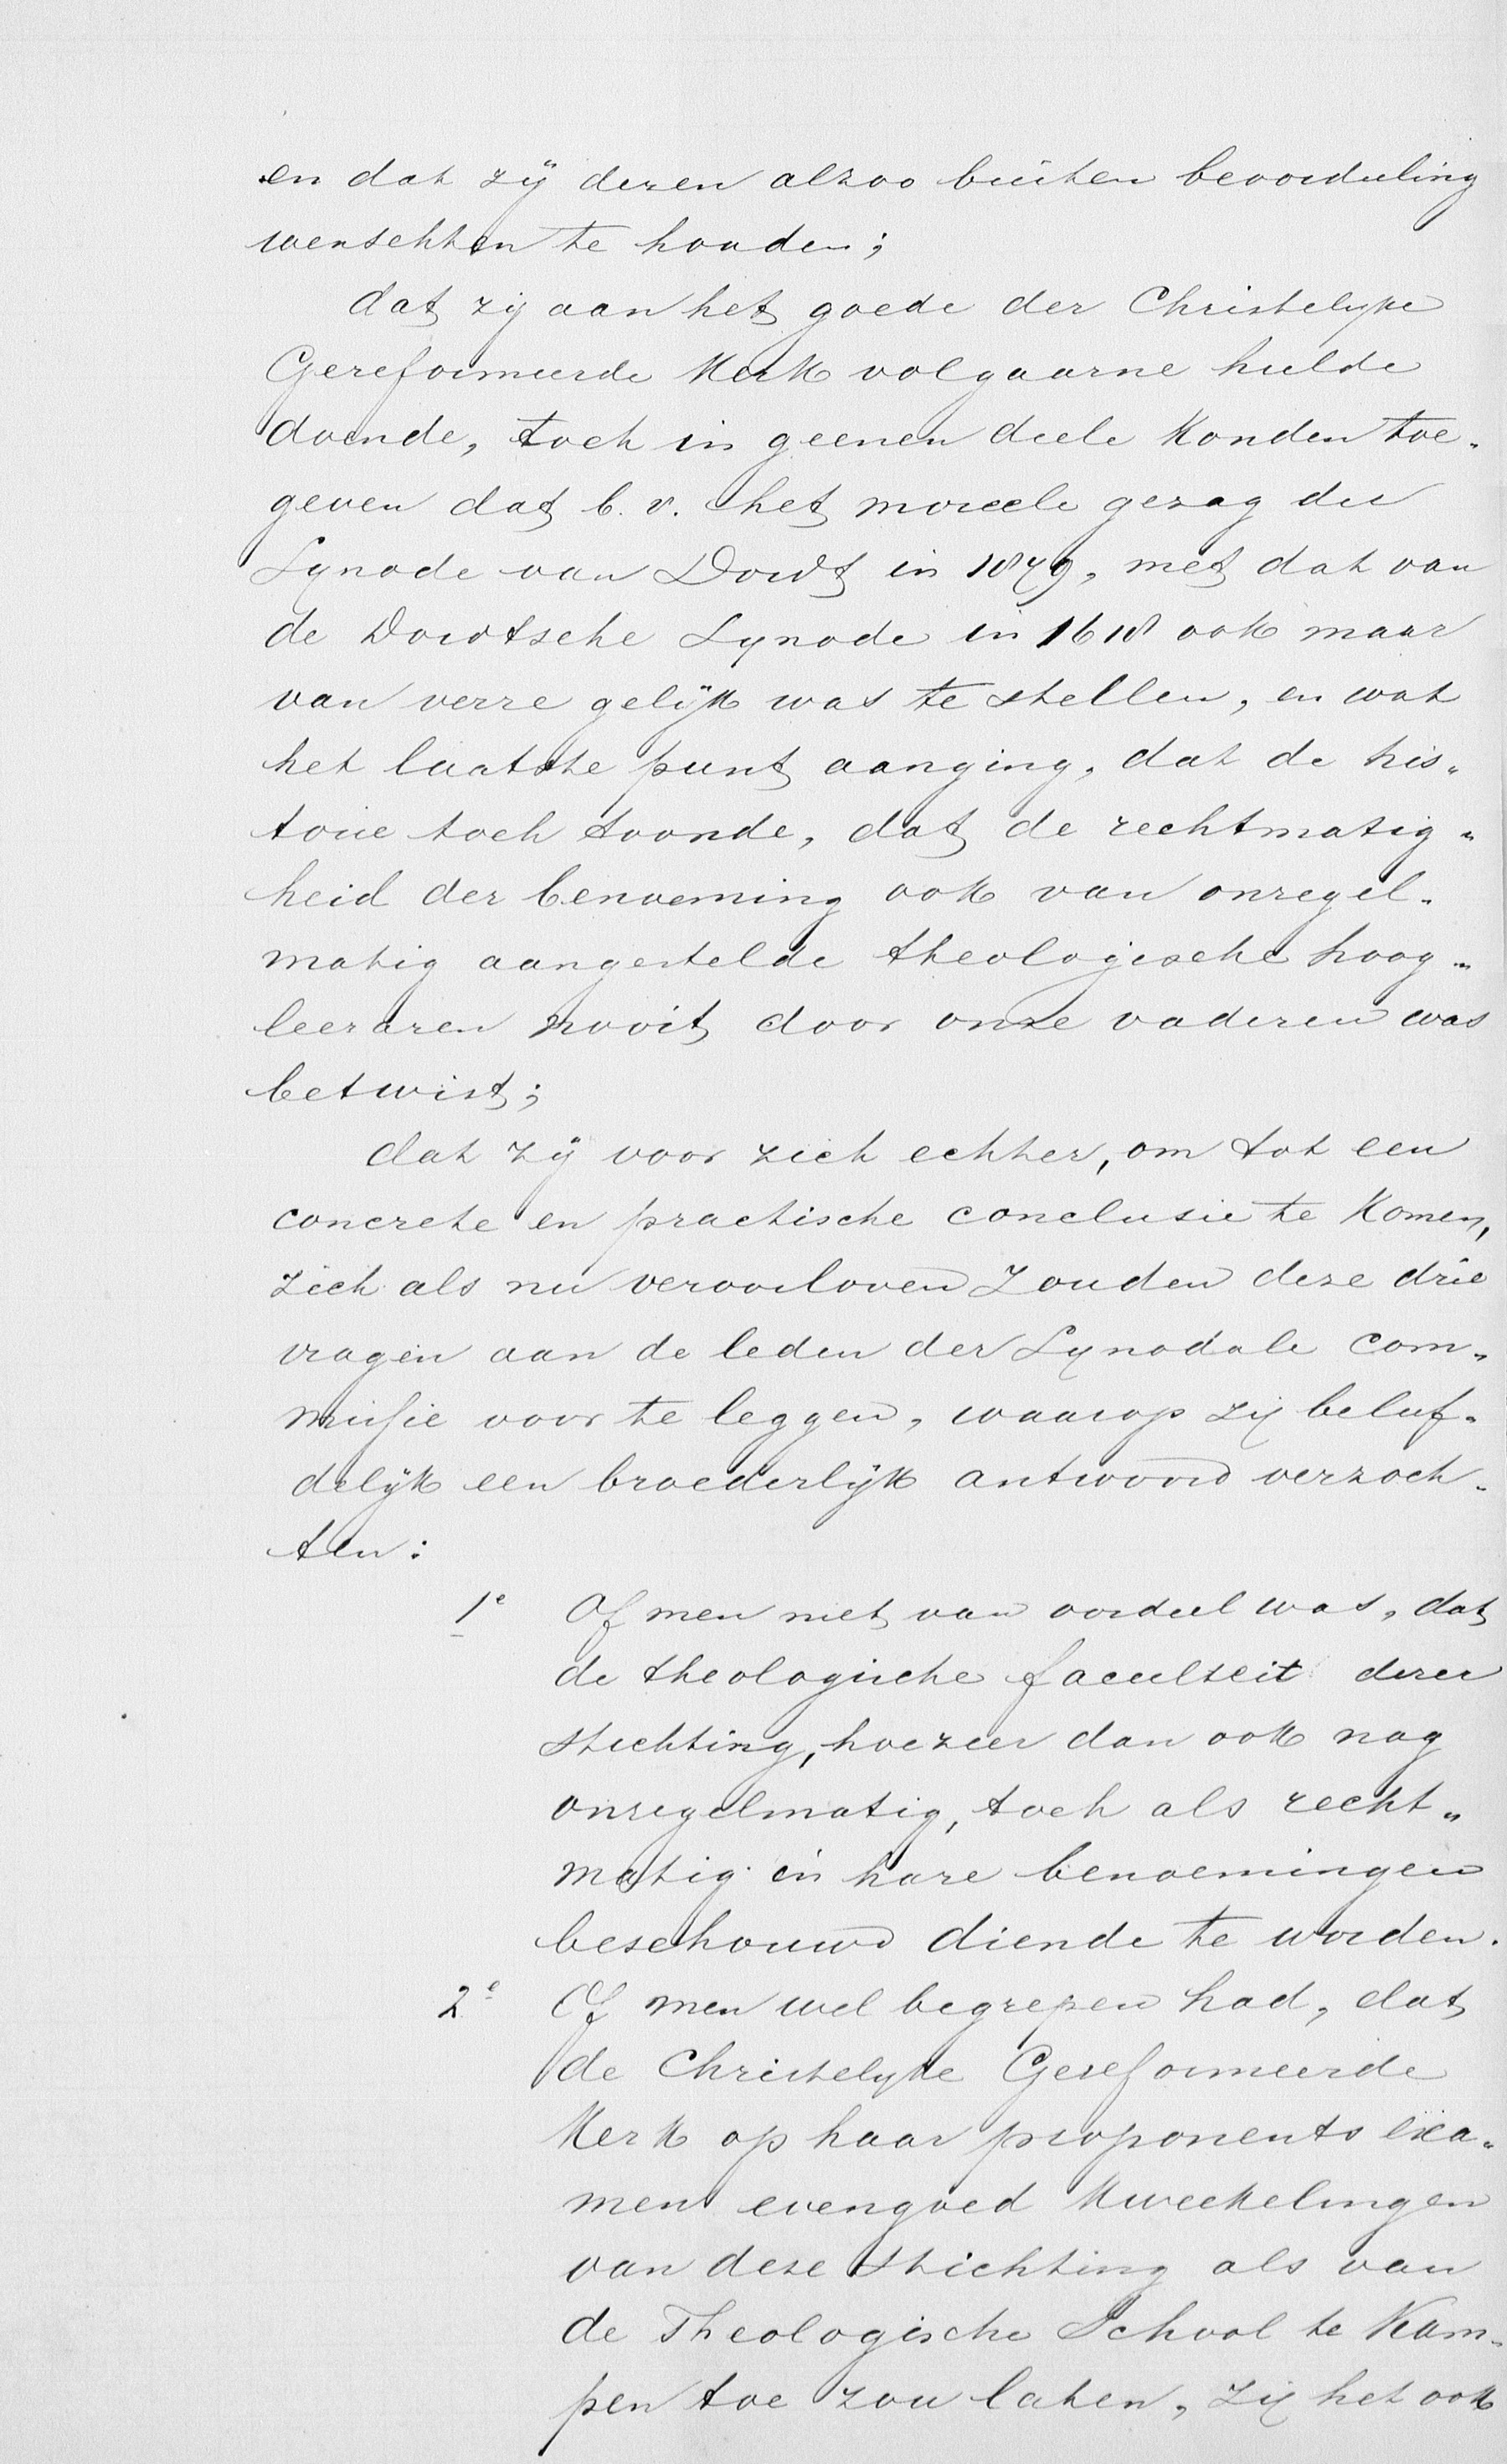 en dat zij dezen alzoo buiten beoordeeling
wenschten te houden;
dat zij aan het goede der Christelijke
Gereformeerde Kerk volgaarne hulde
doende, toch in geenen deele konden toe-
geven dat b.v. het moreele gezag der
Synode van Dordt in 1879, met dat van
de Dordtsche Synode in 1618 ook maar
van verre gelijk was te stellen, en wat
het laatste punt aanging, dat de his-
torie toch toonde, dat de rechtmatig-
heid der benoeming ook van onregel-
matig aangestelde theologische hoog-
leeraren nooit door onze vaderen was
betwist;
dat zij voor zich echter, om tot een
concrete en practische conclusie te komen,
zich als nu veroorloven zouden deze drie
vragen aan de leden der Synodale com-
missie voor te leggen, waarop zij beleef-
delijk een broederlijk antwoord verzoch-
ten:
1e Of men niet van oordeel was, dat
de theologische faculteit dezer
stichting, hoezeer dan ook nog
onregelmatig, toch als recht-
matig in hare benoemingen
beschouwd diende te worden.
2e Of men wel begrepen had, dat
de Christelijke Gereformeerde
Kerk op haar proponents exa-
men evengoed kweekelingen
van deze stichting als van
de Theologische School te Kam-
pen toe zou laten, zij het ook